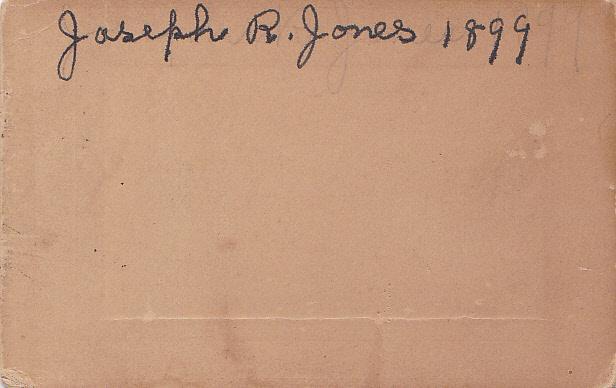 Joseph R. Jones 1899